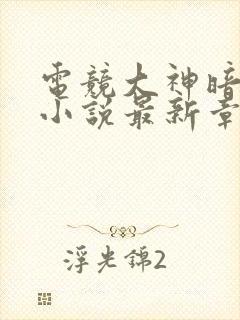 電競大神暗
小說最新章
浮光錦2